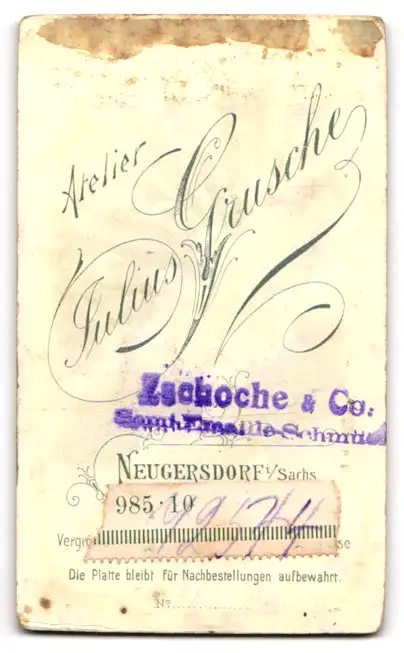 Atelier
Julius Grusche
Zschoche & Co.
Semi-Emaille-Schmuck
NEUGERSDORF i/Sachs
985·10
Vergr
se
Die Platte bleibt für Nachbestellungen aufbewahrt.
No